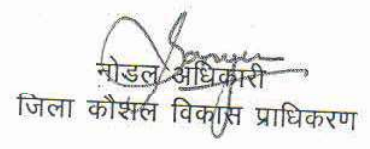 नोडल अधिकारी
जिला कौशल विकास प्राधिकरण